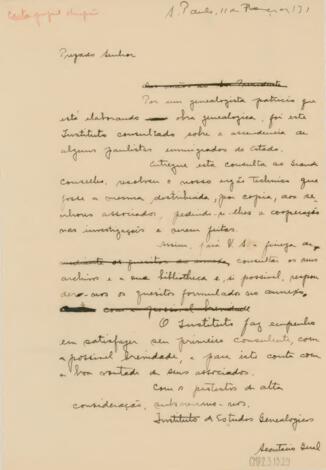 S. Paulo, 11 de Março de 1931
Prezado Senhor
Por um genealogista patricio que
está elaborando obra genealogica, foi este
Instituto consultado sobre a ascendencia de
alguns paulistas emigrados do Estado.
Entregue esta consulta ao Grande
Conselho, resolveu o nosso orgão technico que
fosse a mesma distribuida, por copia, aos se-
nhores associados, pedindo-lhes a cooperação
nas investigações a serem feitas.
Assim, fará V. S. a fineza de
consultar os seus
archivos e a sua bibliotheca e, si possivel, respon-
der-nos os quesitos formulados no annexo.
O Instituto faz empenho
em satisfazer seu primeiro consulente, com
a possivel brevidade, e para isto conta com
a boa vontade de seus associados.
Com os protestos de alta
consideração, subscrevemo-nos,
Instituto de Estudos Genealogicos
Secretario Geral